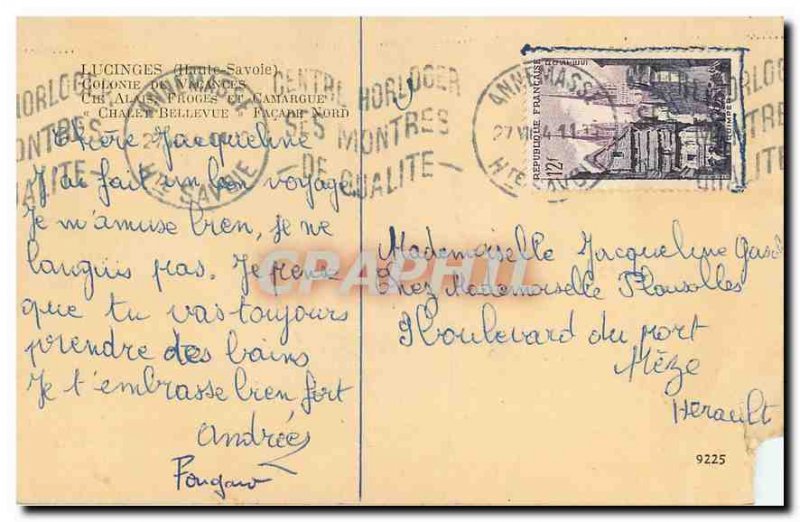 LUCINGES (Haute-Savoie)
COLONIE DE VACANCES
Cie ALAIS, FROGES ET CAMARGUE
" CHALET BELLEVUE " FAÇADE NORD
Chère Jacqueline
J'ai fait un bon voyage.
Je m'amuse bien, je ne
languis pas. Je pense
que tu vas toujours
prendre des bains
Je t'embrasse bien fort
Andrée
ANNEMASSE
HTE SAVOIE
CENTRE HORLOGER
SES MONTRES
DE QUALITE
ANNEMASSE
27 VII
HTE SAVOIE
REPUBLIQUE FRANÇAISE
12F
QUIMPER
HORLOGER
MONTRES
QUALITE
Mademoiselle Jacqueline
Chez Mademoiselle Plousolles
9 Boulevard du port
Mèze
Hérault
9225
CPARHI